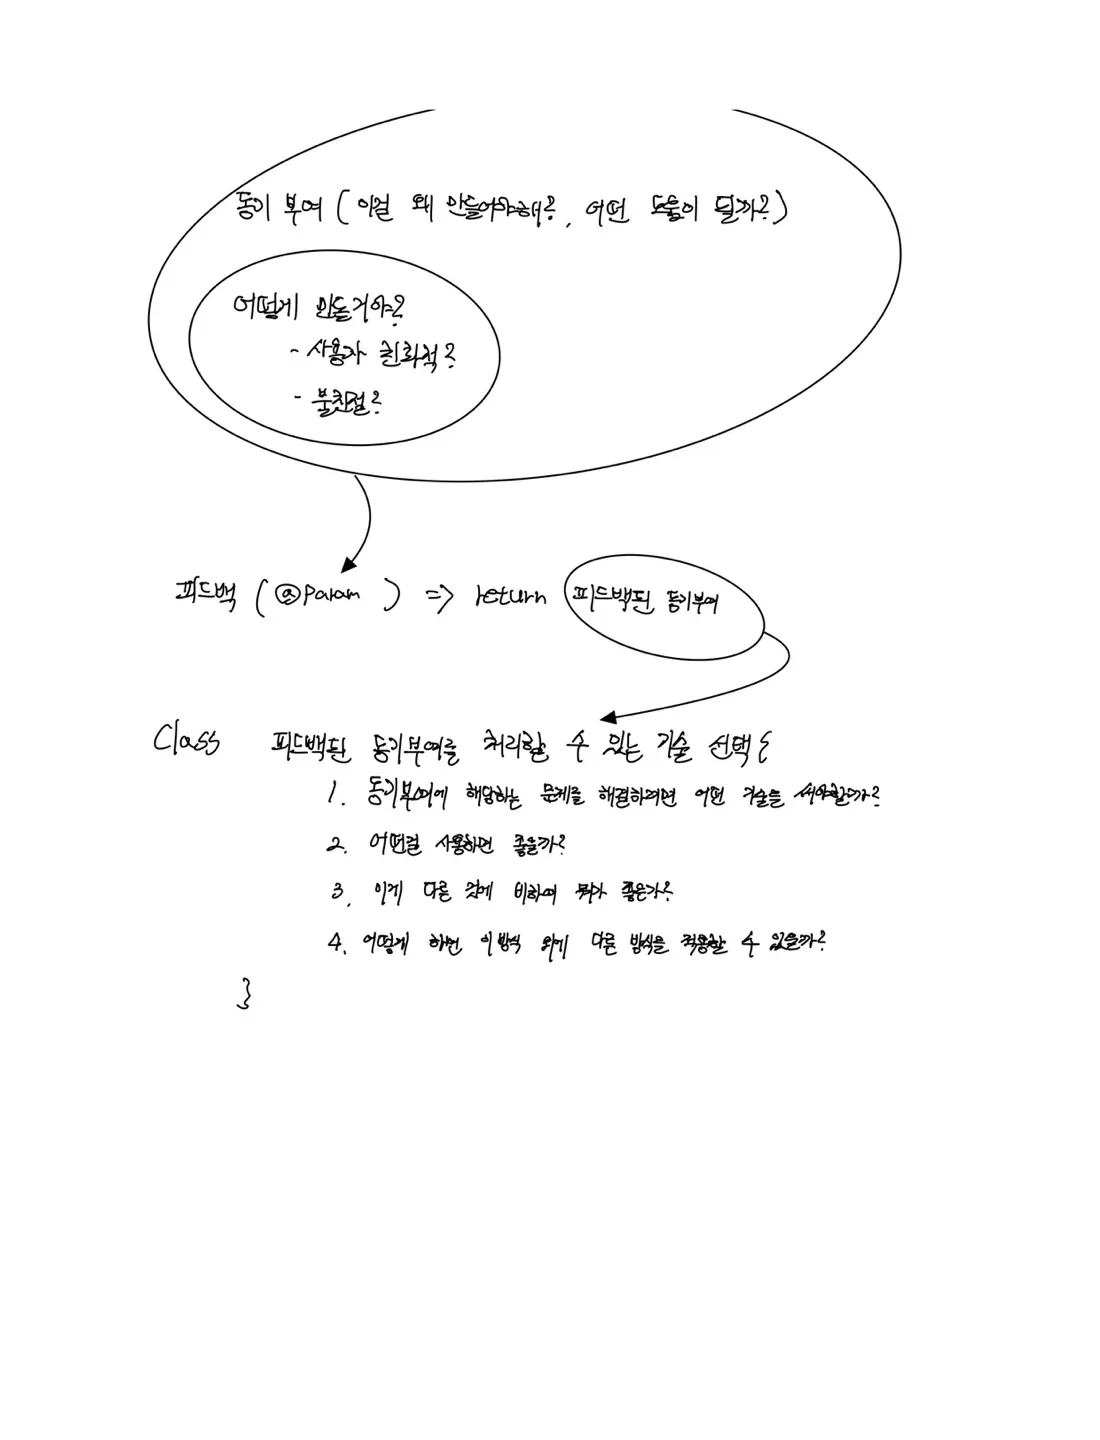 동기 부여 ( 이걸 왜 만들어야해?, 어떤 도움이 될까? )
어떻게 만들거야?
- 사용자 친화적?
- 불친절?
피드백 ( @param ) => return 피드백된 동기부여
Class 피드백된 동기부여를 처리할 수 있는 기술 선택 {
1. 동기부여에 해당하는 문제를 해결하려면 어떤 기술을 써야할까?
2. 어떤걸 사용하면 좋을까?
3. 이게 다른 것에 비하여 뭐가 좋은가?
4. 어떻게 하면 이 방식 외에 다른 방식을 적용할 수 있을까?
}